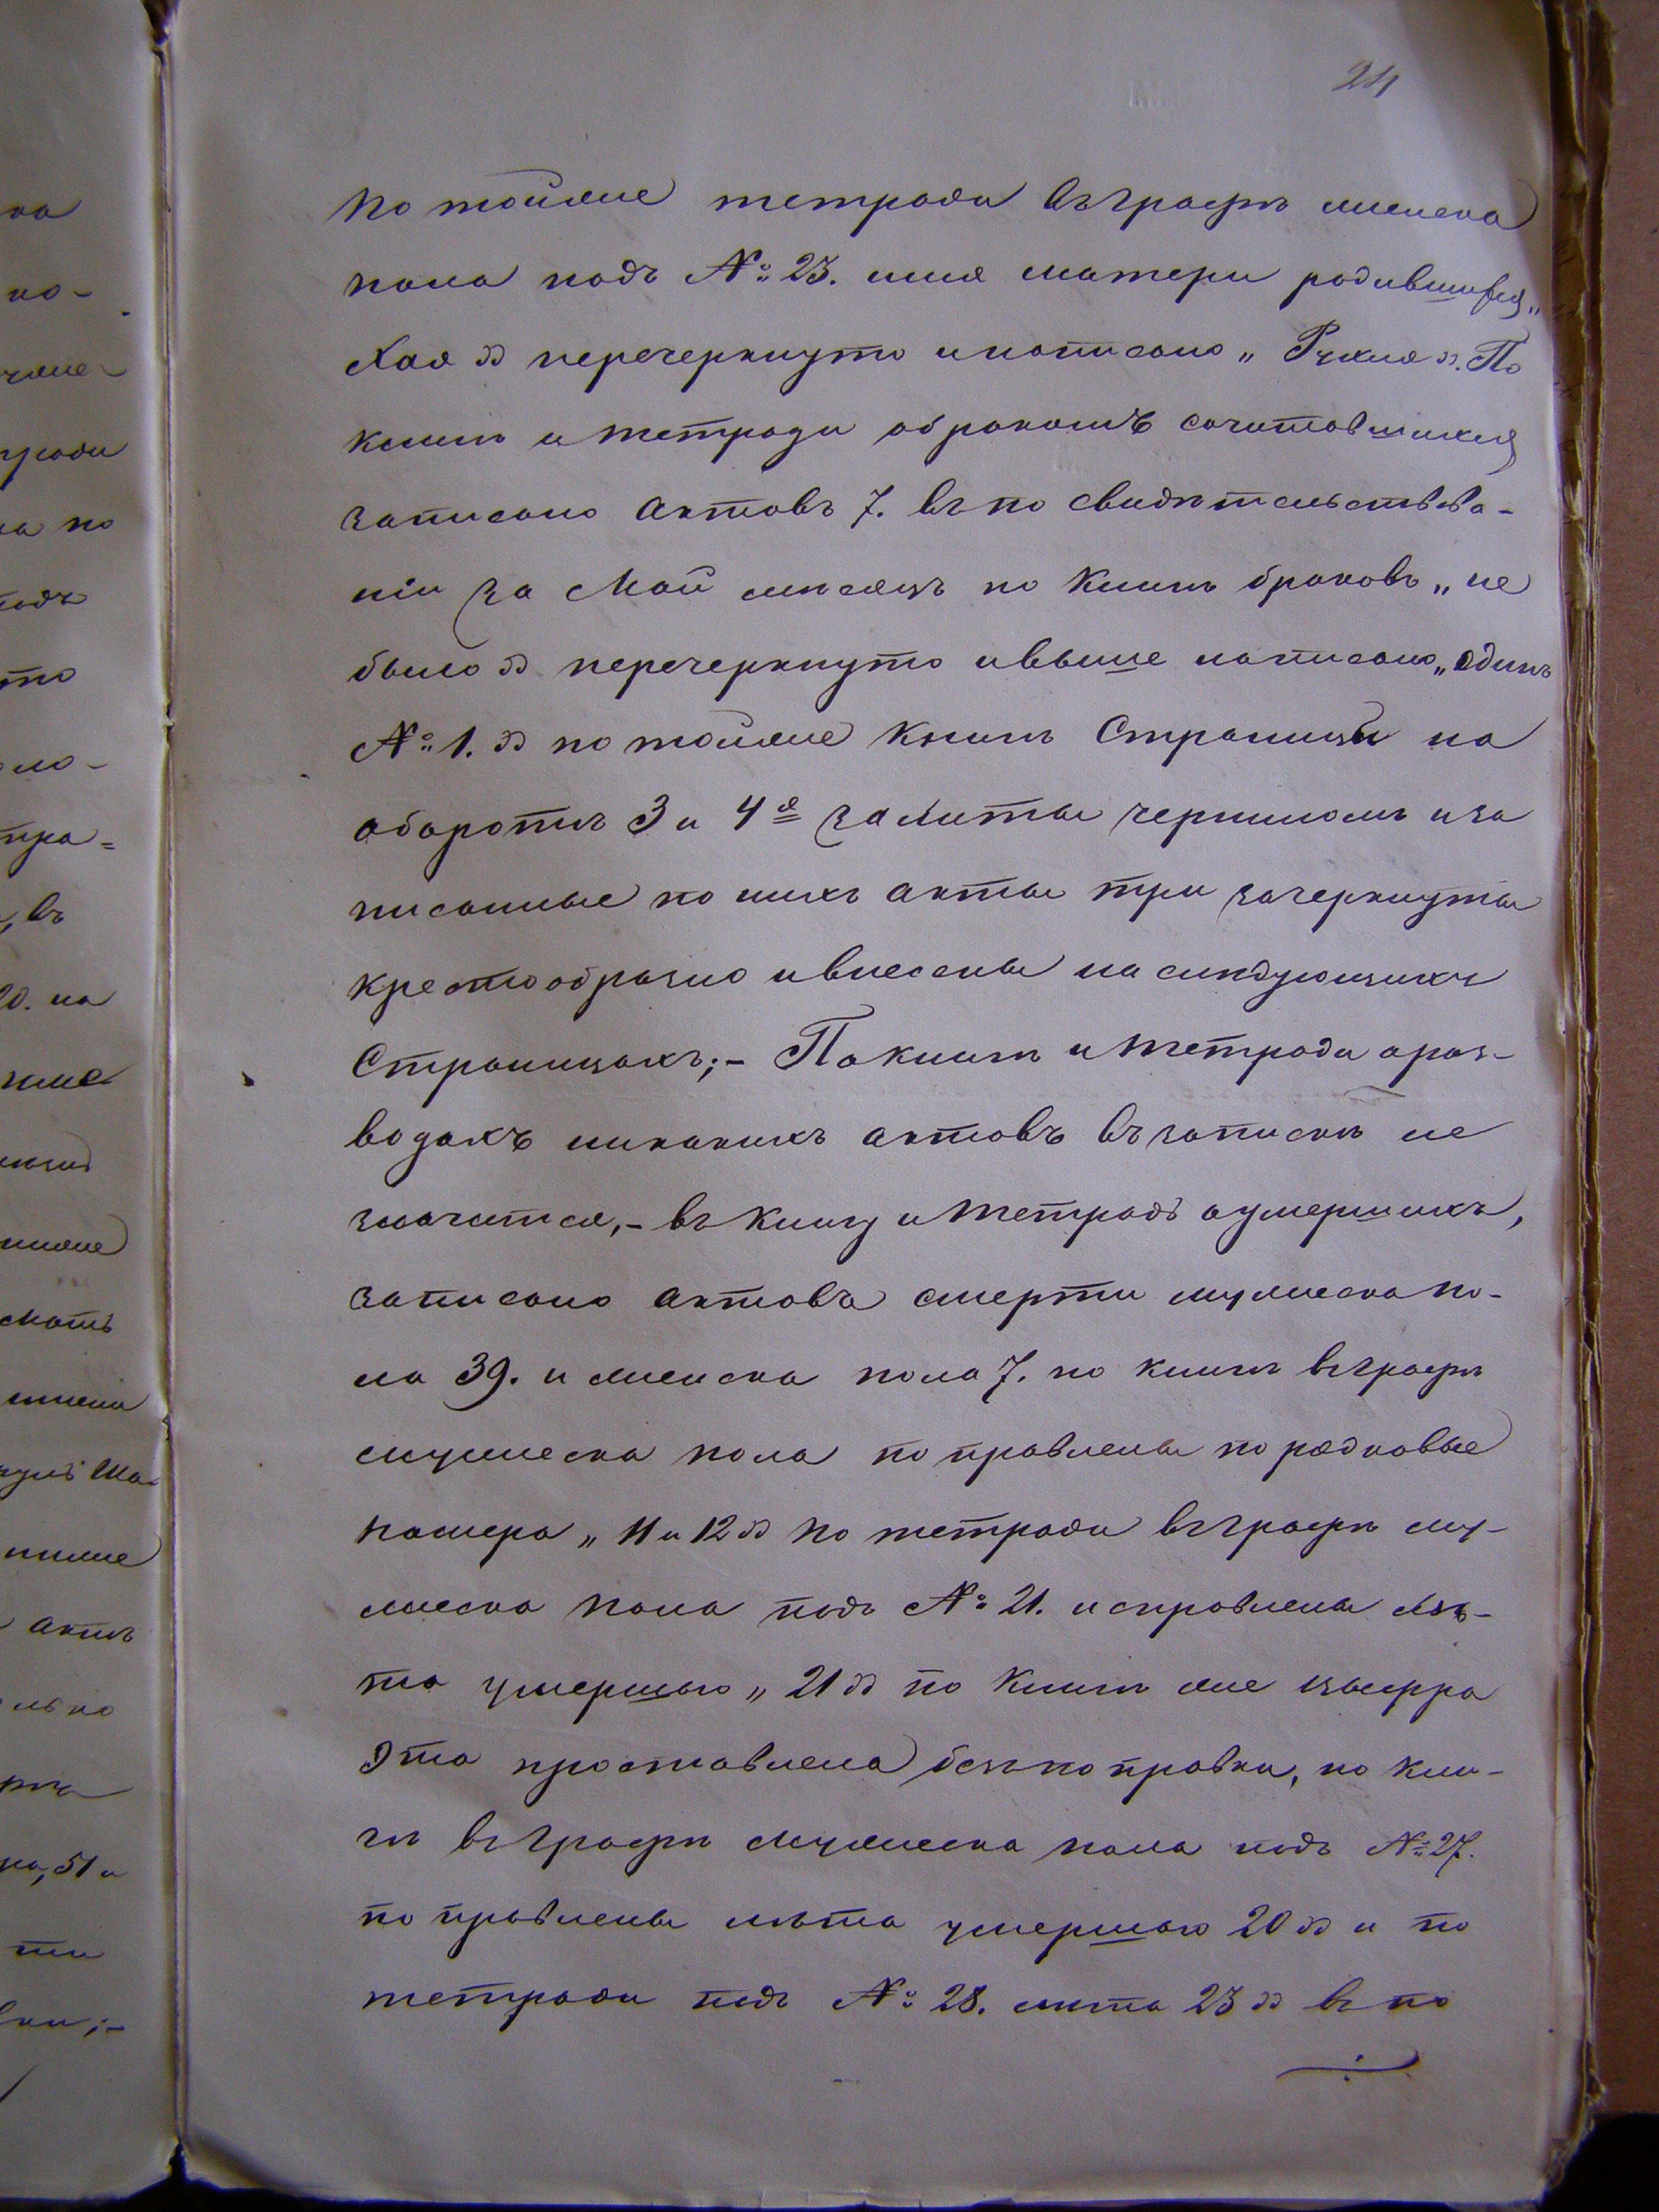 24
по тойже тетради въ графѣ женска
пола подъ №: 23. имя матери родившейся „
Хая „ перечеркнуто и написано „ Рухля „. По
книгѣ и тетради о бракомъ сочитавшихся
записано актовъ 7. въ по свидѣтельствова-
ніи за Май мѣсяцъ по книгѣ браковъ „ не
было „ перечеркнуто и выше написано „ Одинъ
№: 1. „ по тойже книгѣ страницы на
оборотѣ 3 и 4я залиты чернилом и за
писанные по нихъ акты три зачеркнуты
крестообразно и внесены на слѣдующихъ
страницахъ;- По книгѣ и тетради о раз-
водахъ никакихъ актовъ въ запискѣ не
значится,- въ книгу и тетрадь о умершихъ,
записано актовъ смерти мужеска по-
ла 39. и женска пола 7. по книгѣ въ графѣ
мужеска пола поправлены порядковые
номера „ 11 и 12 „ по тетради въ графѣ му-
жеска пола подъ №: 21. исправлены лѣ-
та умершаго „ 21 „ по книгѣ же цыфра
эта проставлена безъ поправки, по кни-
гѣ въ графѣ мужеска пола подъ №: 27.
поправлены лѣта умершаго 20 „ и по
тетради подъ №: 28. лѣта 23 „ въ по
ка
ко-
тради
на по
подъ
то
ло-
тра=
, въ
20. на
мать
акты
льно
но, 51 и
ти